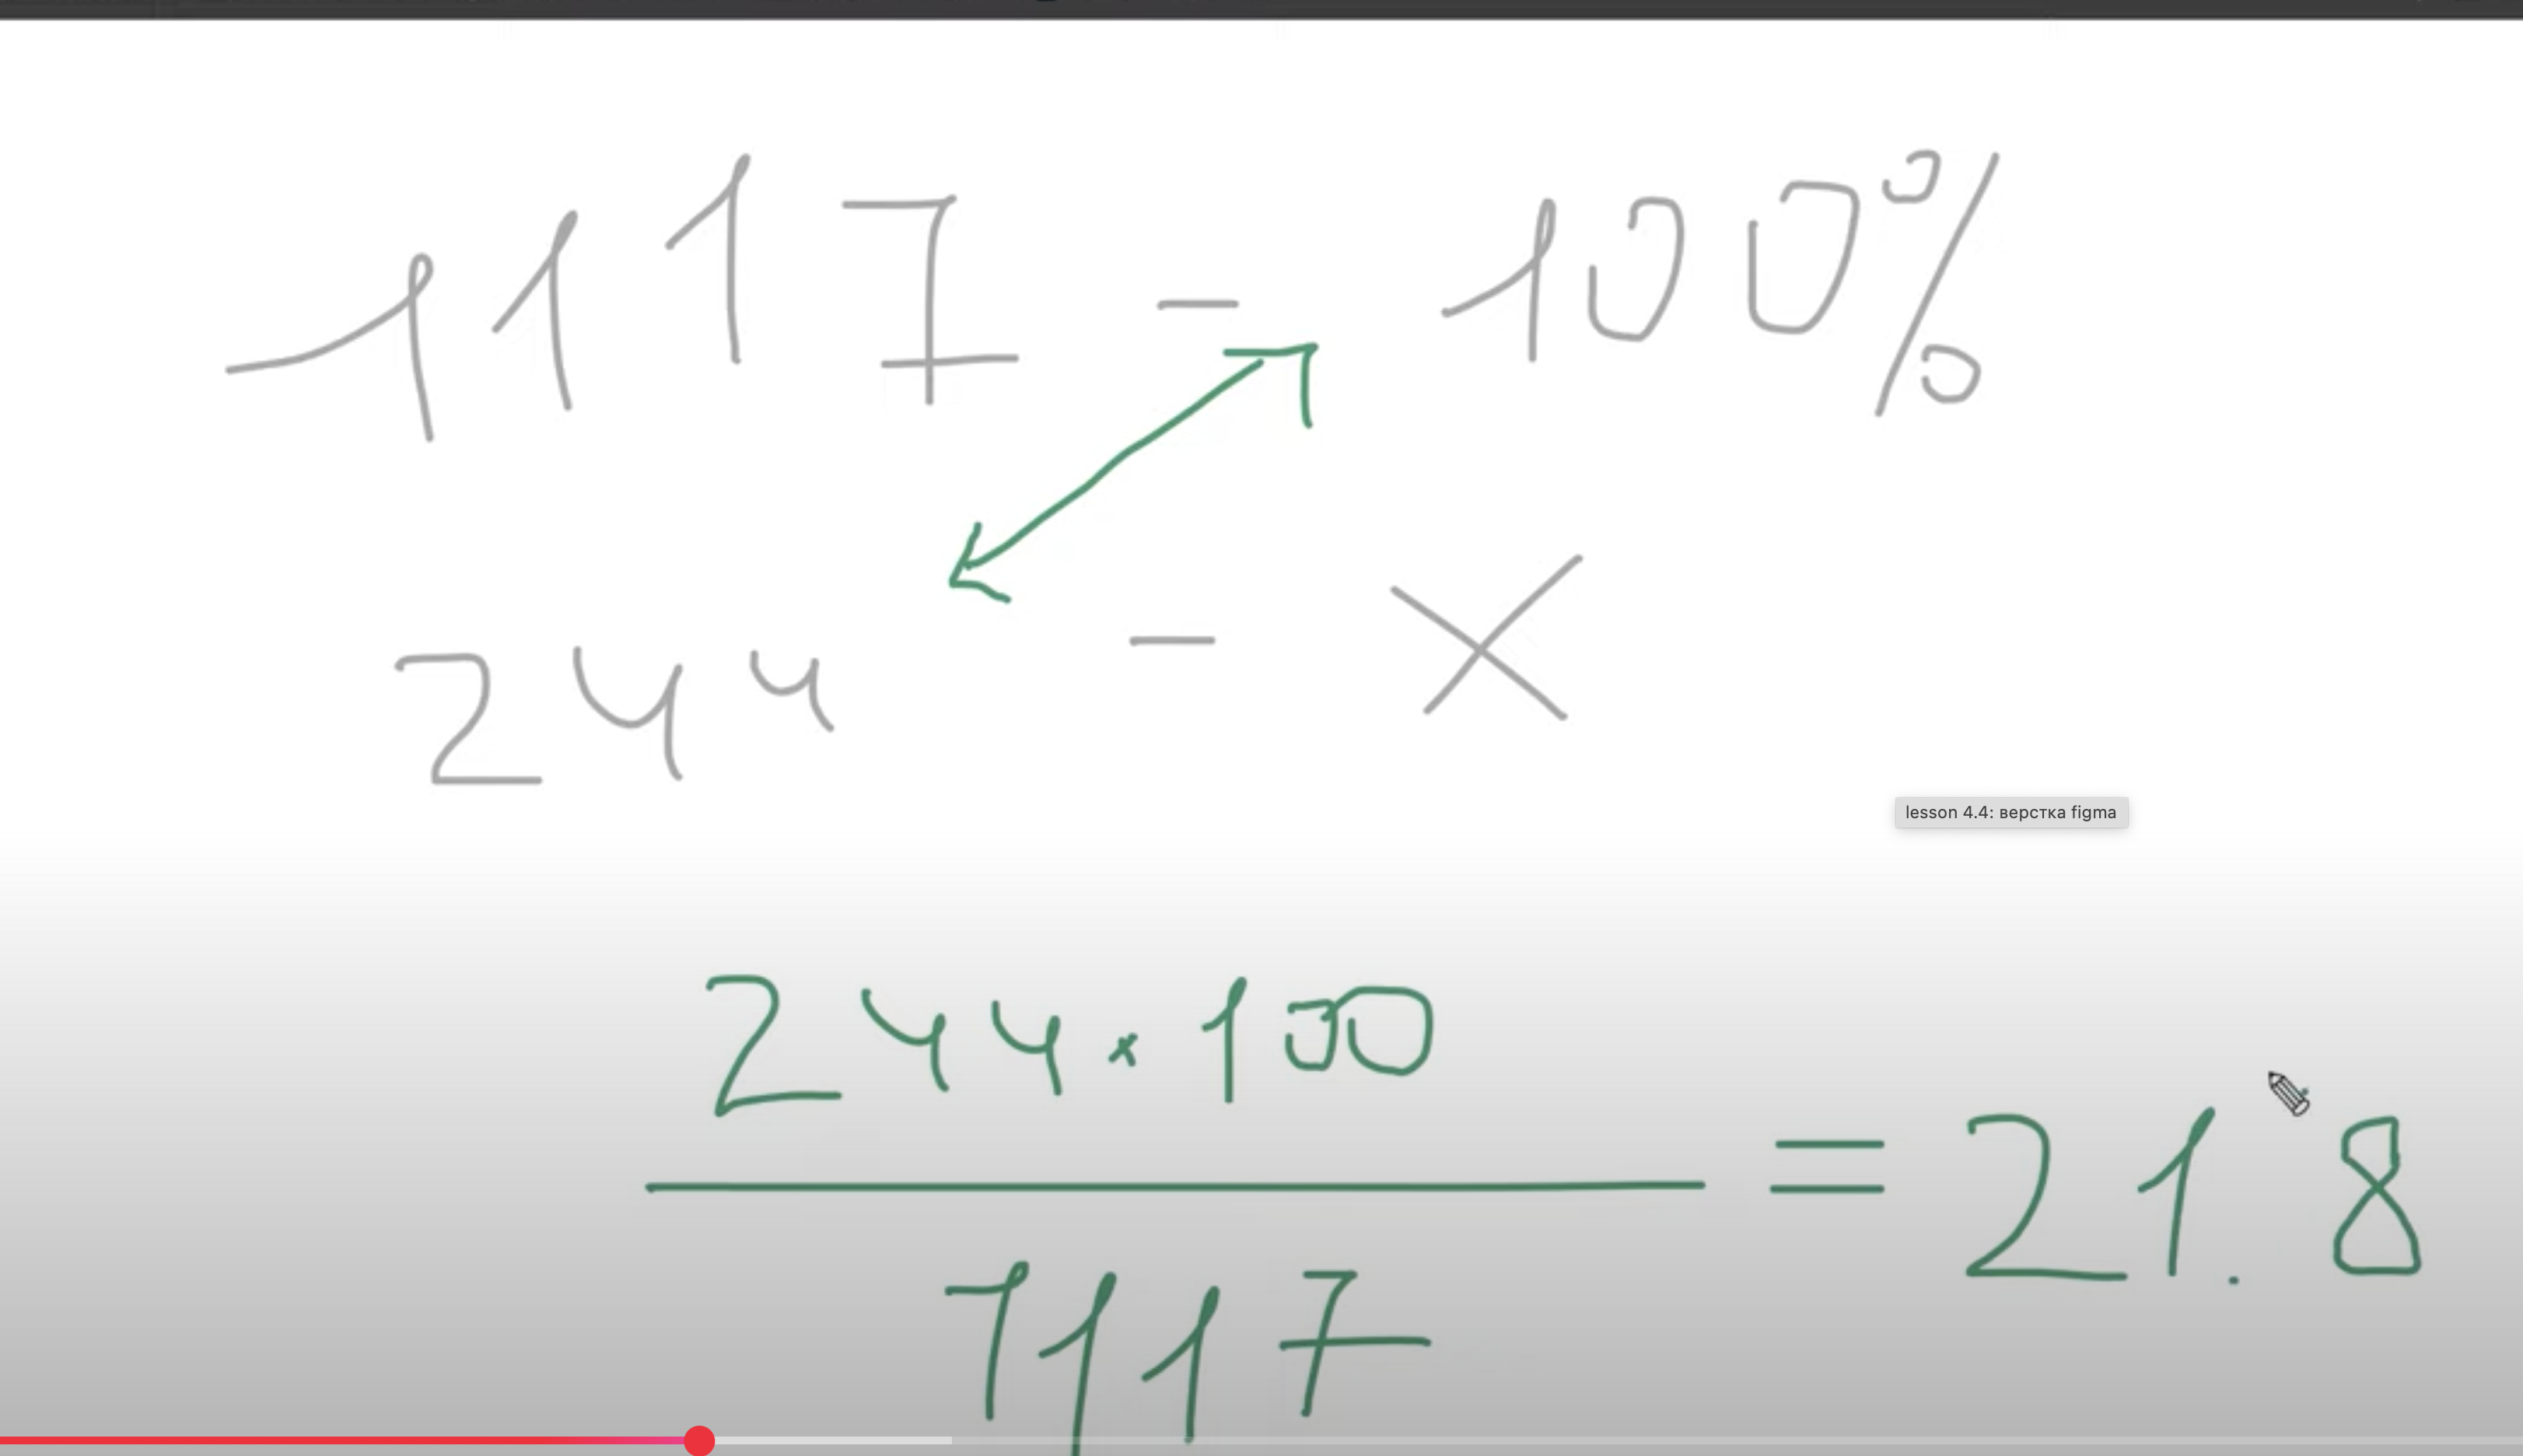 1117 - 100%
244 - X
lesson 4.4: верстка figma
244 * 100
= 21.8
1117